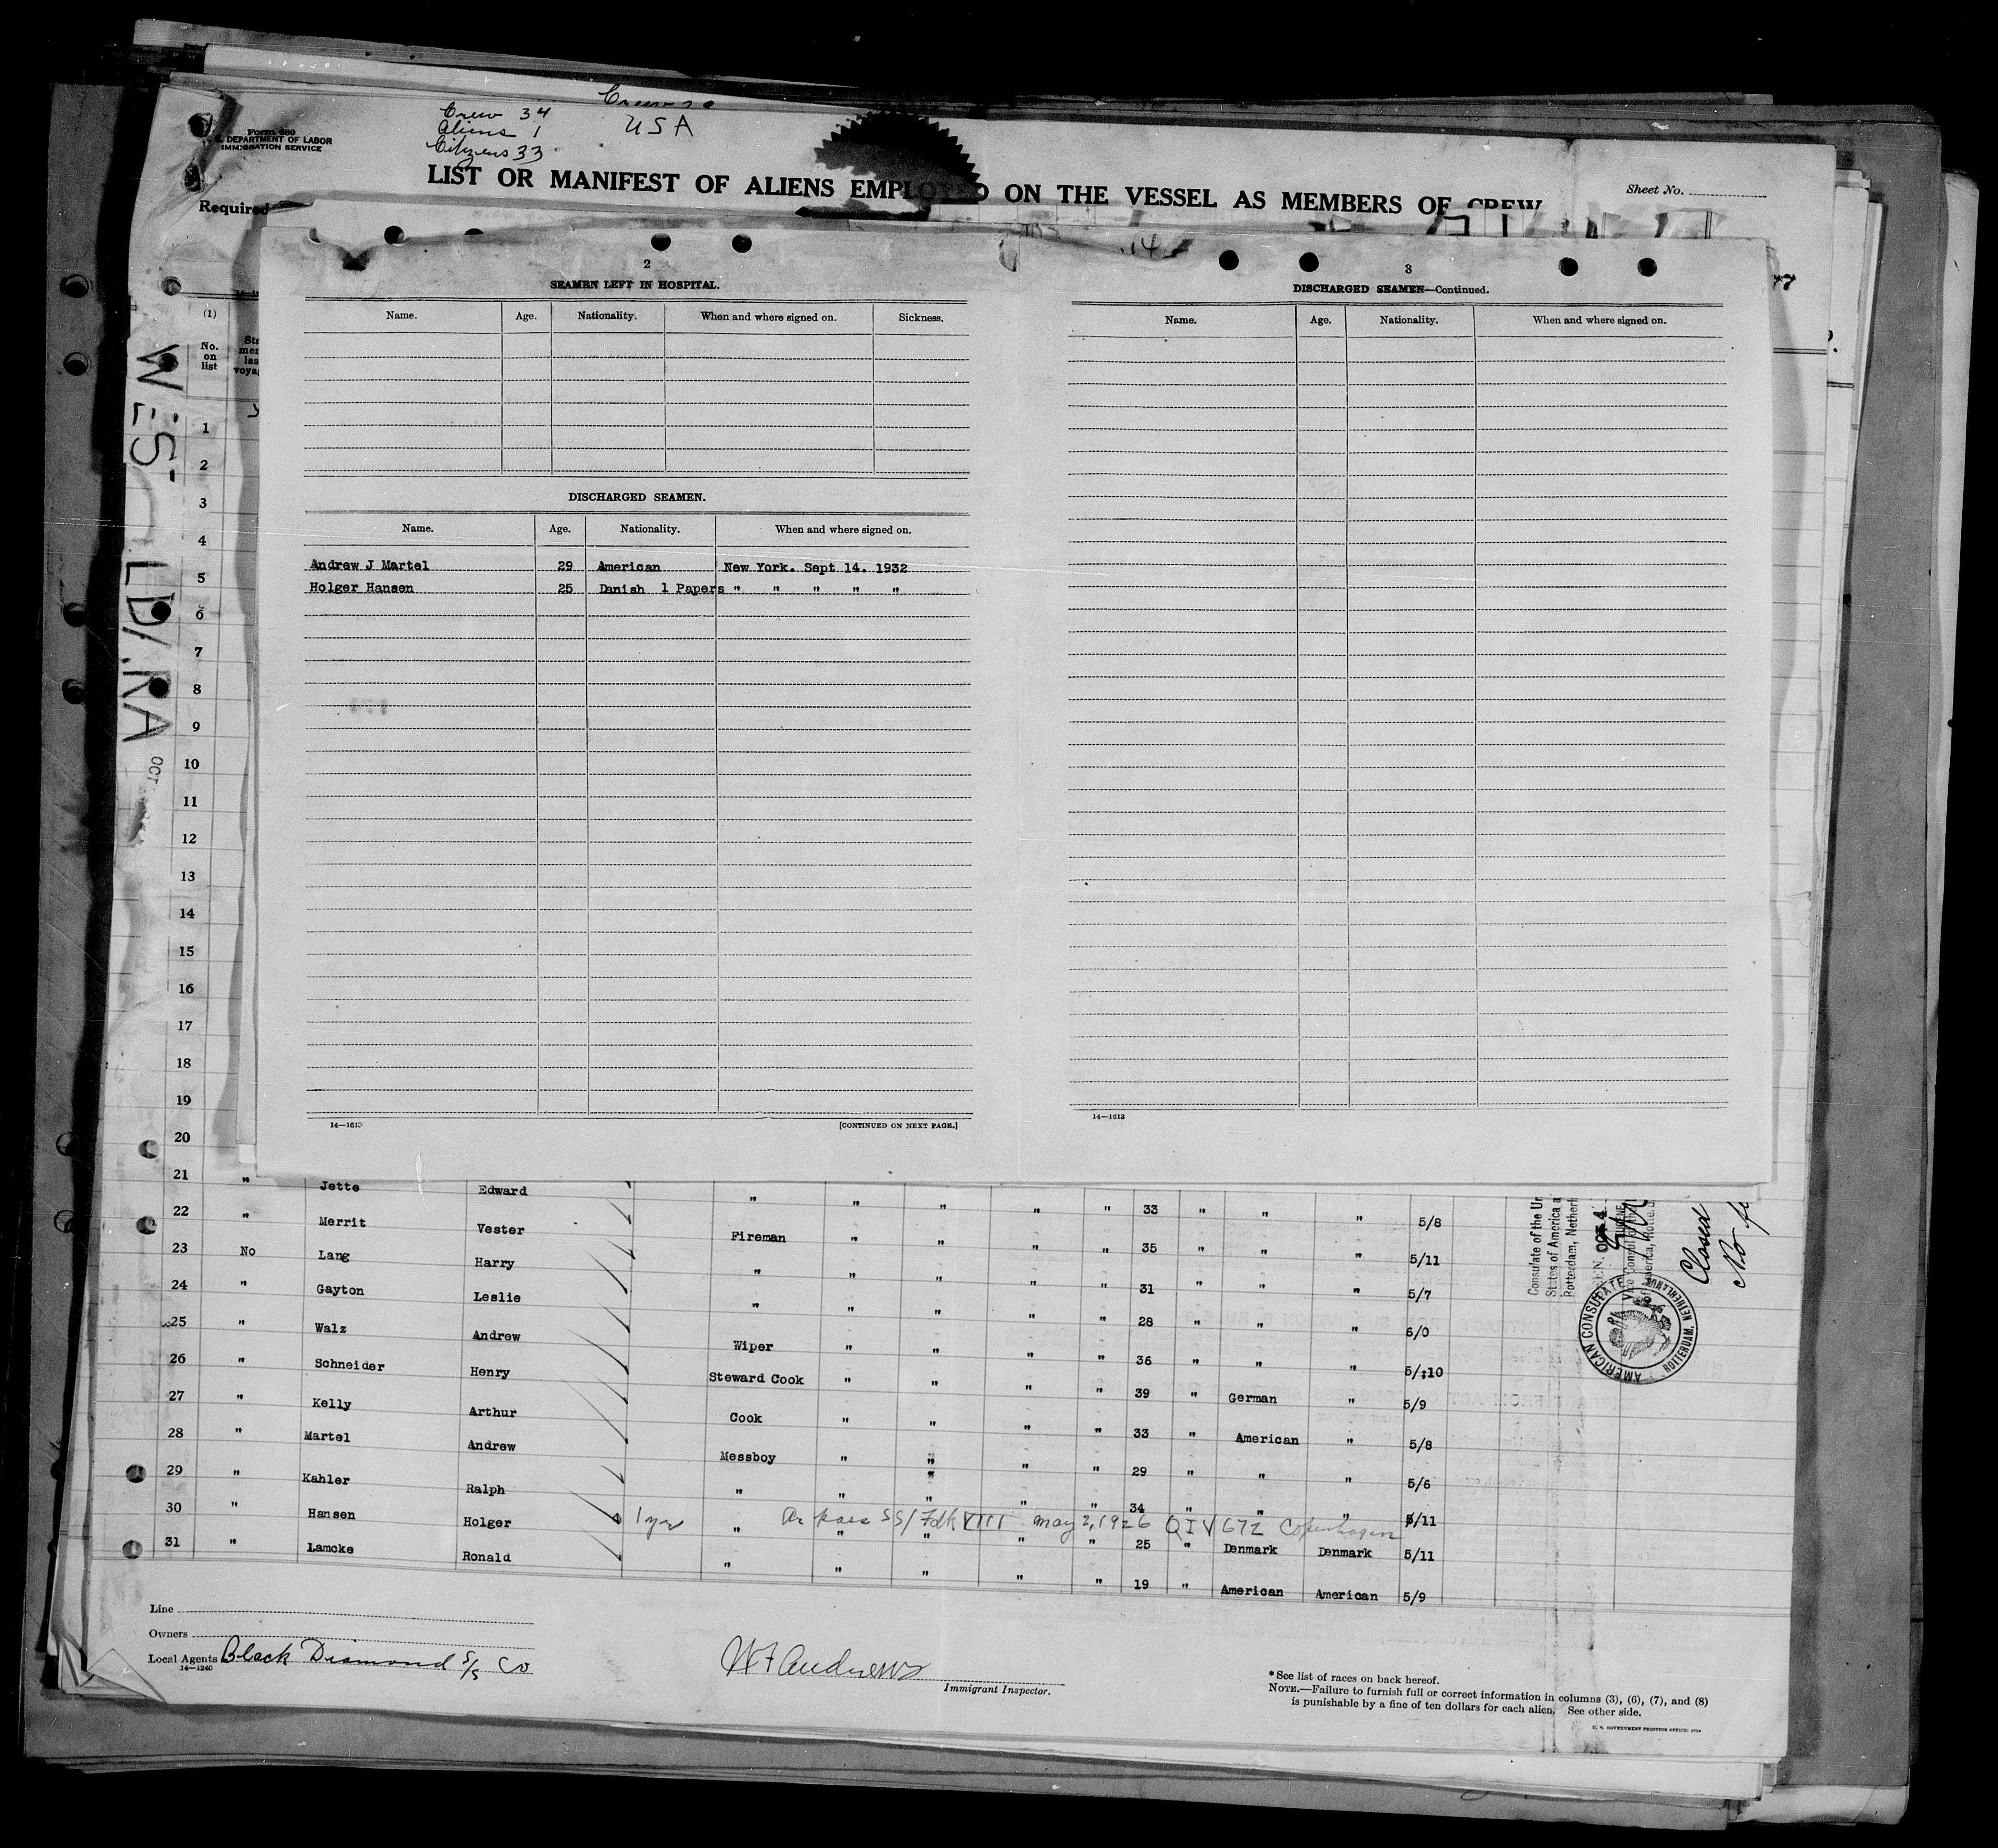 Crew 34
Aliens 1
Citizens 33
USA
Form 680
DEPARTMENT OF LABOR
IMMIGRATION SERVICE
LIST OR MANIFEST OF ALIENS EMPLOYED ON THE VESSEL AS MEMBERS OF CREW
Sheet No.
Required
(1)
No.
on
list
OCT
2
SEAMEN LEFT IN HOSPITAL.
Name. Age. Nationality. When and where signed on. Sickness.
DISCHARGED SEAMEN.
Name. Age. Nationality. When and where signed on.
Andrew J Martel 29 American New York. Sept 14. 1932
Holger Hansen 25 Danish 1 Papers " " " " "
14—1613
[CONTINUED ON NEXT PAGE.]
3
DISCHARGED SEAMEN—Continued.
Name. Age. Nationality. When and where signed on.
14—1613
1
2
3
4
5
6
7
8
9
10
11
12
13
14
15
16
17
18
19
20
21 " Jette Edward " " " " " 33 " " " 5/8
22 " Merrit Vester Fireman " " " " 35 " " " 5/11
23 No Lang Harry " " " " " 31 " " " 5/7
24 " Gayton Leslie " " " " " 28 " " " 6/0
25 " Walz Andrew Wiper " " " " 36 " " " 5/10
26 " Schneider Henry Steward Cook " " " " 39 " German " 5/9
27 " Kelly Arthur Cook " " " " 33 " American " 5/8
28 " Martel Andrew Messboy " " " " 29 " " " 5/6
29 " Kahler Ralph " " " " " 34 " " " 5/11
1 yr May 2, 1926 QIV 672 Copenhagen
30 " Hansen Holger " " " " " 25 " Denmark Denmark 5/11
31 " Lamcke Ronald " " " " " 19 " American American 5/9
Consulate of the
States of America
Rotterdam,
AMERICAN CONSULATE
ROTTERDAM, NETHERLANDS
Closed
No
Line
Owners
Local Agents Black Diamond S/S Co
14—1240
W F Andrews
Immigrant Inspector.
* See list of races on back hereof.
NOTE.—Failure to furnish full or correct information in columns (3), (6), (7), and (8)
is punishable by a fine of ten dollars for each alien. See other side.